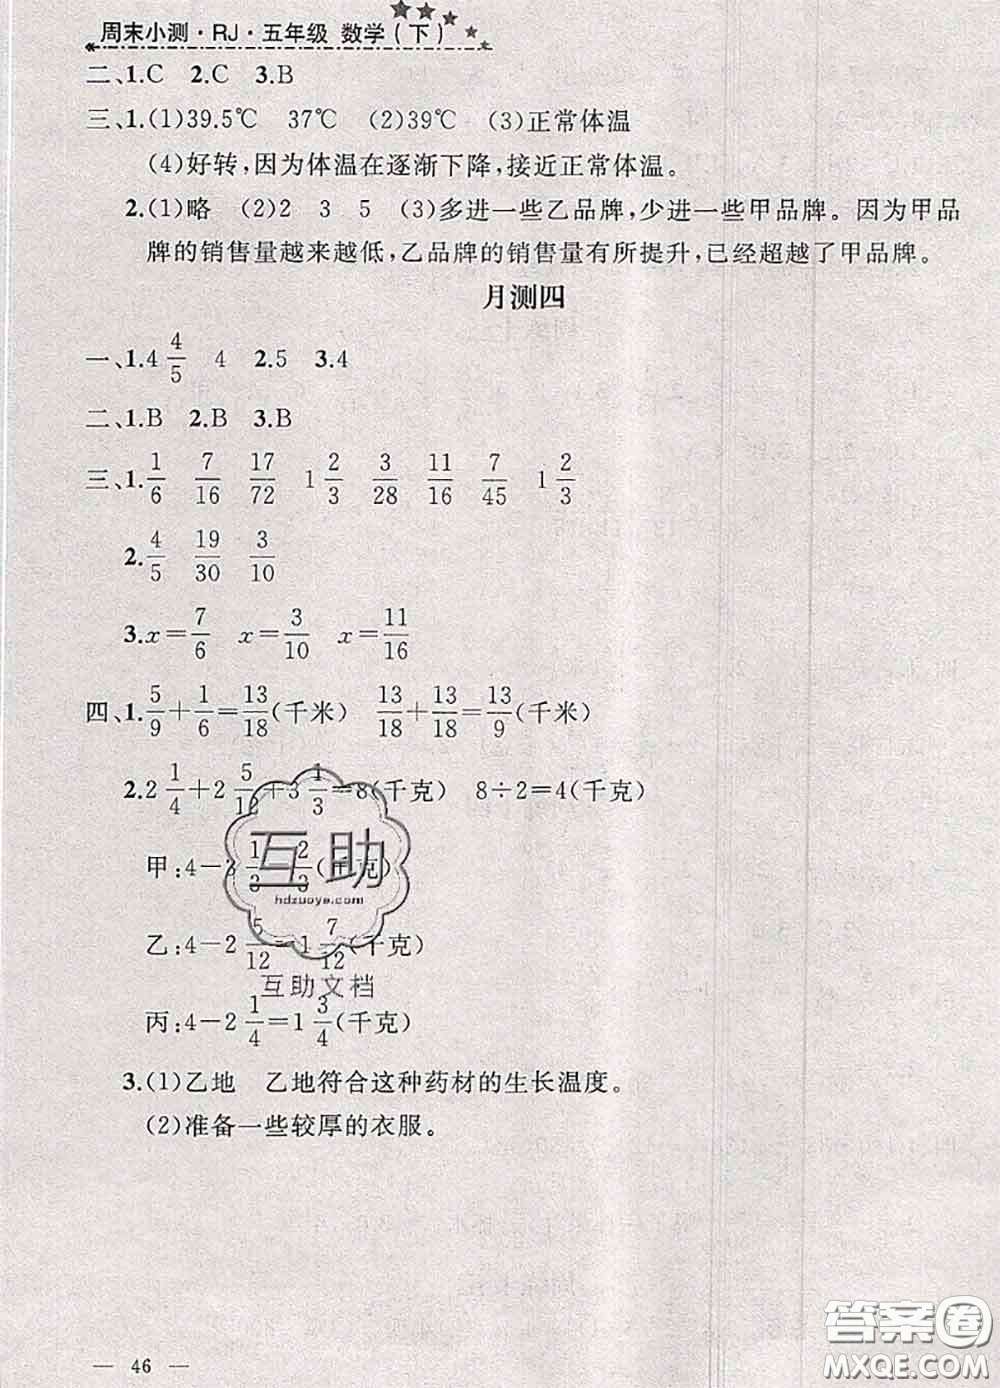 周末小测·RJ·五年级 数学(下)
二、1.C 2.C 3.B
三、1.(1)39.5℃ 37℃ (2)39℃ (3)正常体温
(4)好转,因为体温在逐渐下降,接近正常体温。
2.(1)略 (2)2 3 5 (3)多进一些乙品牌,少进一些甲品牌。因为甲品
牌的销售量越来越低,乙品牌的销售量有所提升,已经超越了甲品牌。
月测四
一、1.4 4/5 4 2.5 3.4
二、1.B 2.B 3.B
三、1. 1/6 7/16 17/72 1 2/3 3/28 11/16 7/45 1 2/3
2. 4/5 19/30 3/10
3. x=7/6 x=3/10 x=11/16
四、1. 5/9+1/6=13/18(千米) 13/18+13/18=13/9(千米)
2. 2 1/4+2 5/12+3 1/3=8(千克) 8÷2=4(千克)
甲:4-3 1/3=2/3(千克)
乙:4-2 5/12=1 7/12(千克)
丙:4-2 1/4=1 3/4(千克)
3.(1)乙地 乙地符合这种药材的生长温度。
(2)准备一些较厚的衣服。
互助
hdzuoye.com
互助文档
— 46 —
答案圈
MXQE.COM